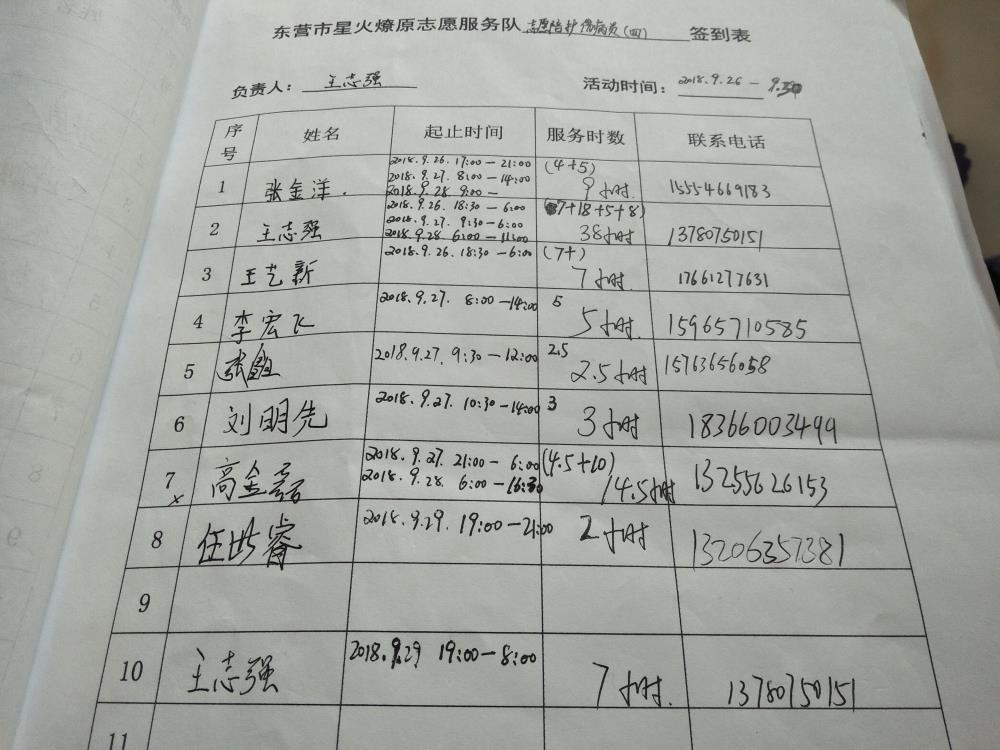 东营市星火燎原志愿服务队 志愿陪护伤病员(四) 签到表
负责人: 王志强 活动时间: 2018.9.26 — 9.30
序号 姓名 起止时间 服务时数 联系电话
1 张金洋. 2018.9.26. 17:00 — 21:00 (4+5) 9小时. 15554669183
2018.9.27. 8:00 — 14:00
2018.9.28 9:00 —
2 王志强 2018.9.26. 18:30 — 6:00 (7+18+5+8) 38小时 13780750151
2018.9.27. 9:30 — 6:00
2018.9.28 6:00 — 11:00
3 王艺新 2018.9.26. 18:30 — 6:00 (7+) 7小时. 17661277631
4 李宏飞 2018.9.27. 8:00 — 14:00 5 5小时. 15965710585
5 2018.9.27. 9:30 — 12:00 2.5 2.5小时 15763656058
6 刘明先 2018.9.27. 10:30 — 14:00 3 3小时 18366003499
7 x 高金磊 2018.9.27. 21:00 — 6:00 (4.5+10) 14.5小时 13255626153
2018.9.28. 6:00 — 16:30
8 任世睿 2018.9.29. 19:00 — 21:00 2小时 13206357381
9
10 王志强 2018.9.29 19:00 — 8:00 7小时. 13780750151
11